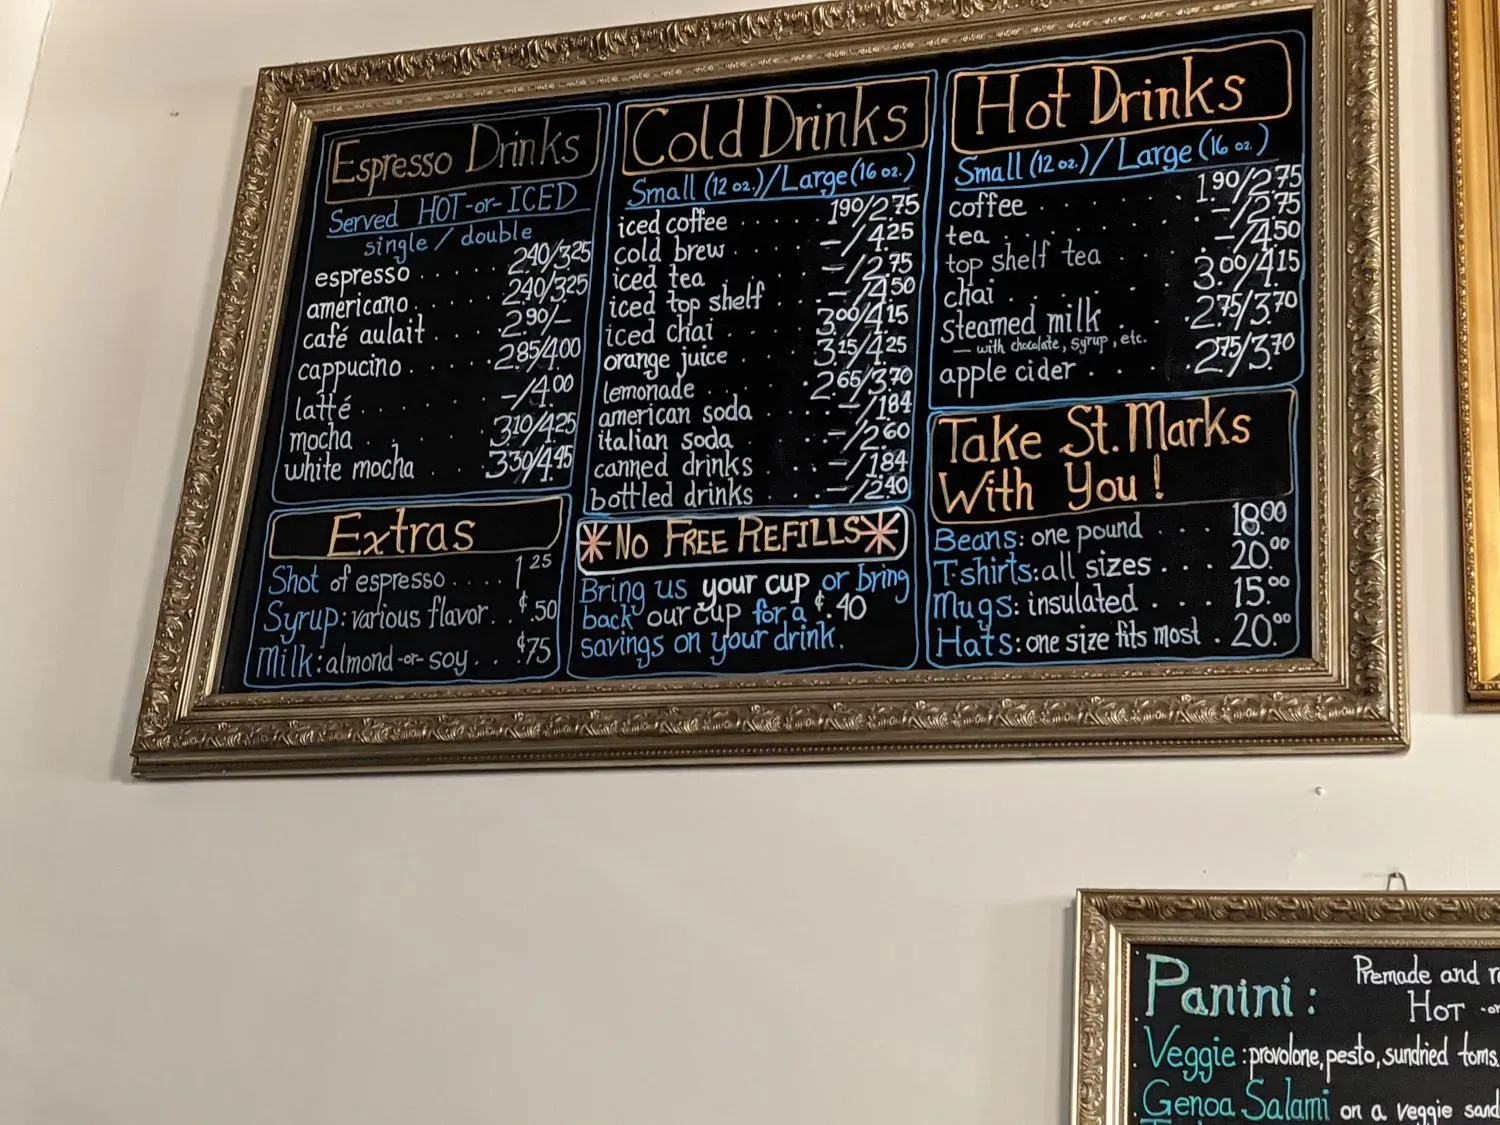 Espresso Drinks
Served HOT-or-ICED
single / double
espresso . . . . . 2.40/3.25
americano . . . . . 2.40/3.25
café aulait . . . . 2.90/—
cappucino . . . . . 2.85/4.00
latté . . . . . —/4.00
mocha . . . . . 3.10/4.25
white mocha . . . 3.30/4.45
Extras
Shot of espresso . . . . 1.25
Syrup: various flavor . . ¢.50
Milk: almond -or- soy . . ¢.75
Cold Drinks
Small (12 oz.)/Large (16 oz.)
iced coffee . . . . . 1.90/2.75
cold brew . . . . . —/4.25
iced tea . . . . . —/2.75
iced top shelf . . . —/4.50
iced chai . . . . 3.00/4.15
orange juice . . . . 3.15/4.25
lemonade . . . . . 2.65/3.70
american soda . . . —/1.84
italian soda . . . . —/2.60
canned drinks . . . —/1.84
bottled drinks . . . —/2.40
NO FREE REFILLS
Bring us your cup or bring
back our cup for a ¢.40
savings on your drink.
Hot Drinks
Small (12 oz.)/Large (16 oz.)
coffee . . . . . 1.90/2.75
tea . . . . . —/2.75
top shelf tea . . . —/4.50
chai . . . . . 3.00/4.15
steamed milk . . 2.75/3.70
— with chocolate, syrup, etc.
apple cider . . . . 2.75/3.70
Take St. Marks
With You!
Beans: one pound . . . 18.00
T-shirts: all sizes . . . 20.00
Mugs: insulated . . . 15.00
Hats: one size fits most . 20.00
Panini: Premade and
HOT -or
Veggie: provolone, pesto, sundried toms.
Genoa Salami on a veggie